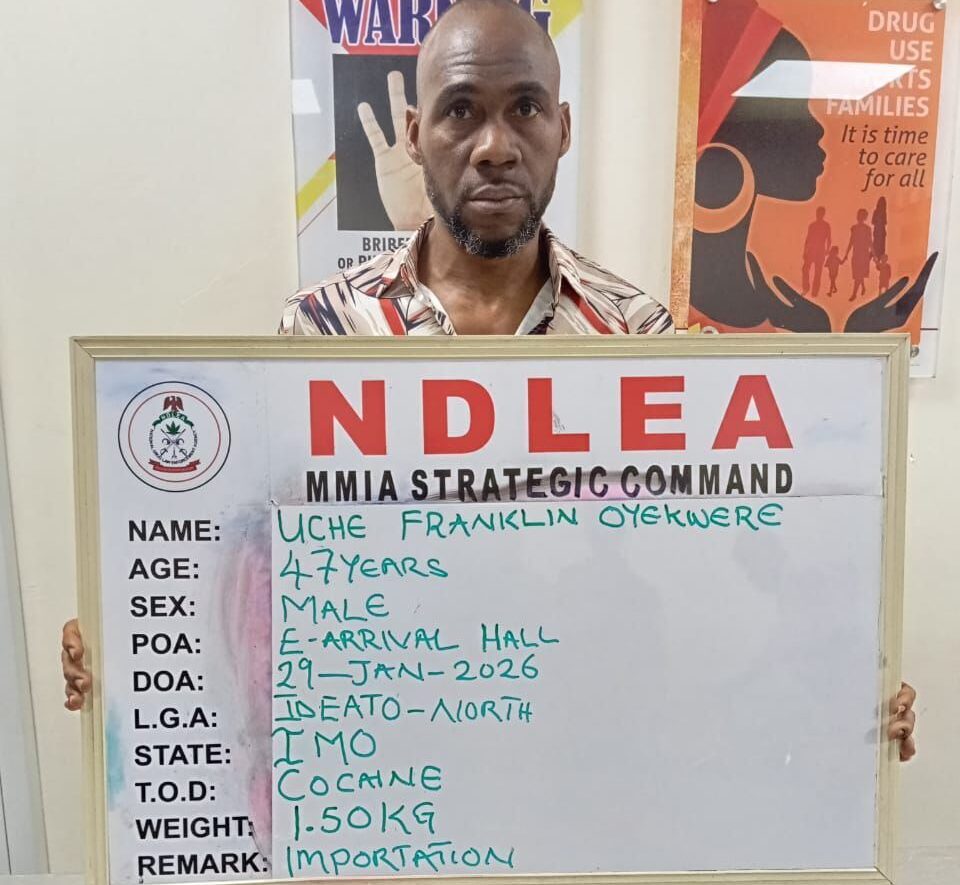 WARNING
DRUG
USE
FAMILIES
It is time
to care
for all
NDLEA
NDLEA
MMIA STRATEGIC COMMAND
NAME: UCHE FRANKLIN OYEKWERE
AGE: 47YEARS
SEX: MALE
POA: E-ARRIVAL HALL
DOA: 29-JAN-2026
L.G.A: IDEATO-NORTH
STATE: IMO
T.O.D: COCAINE
WEIGHT: 1.50KG
REMARK: IMPORTATION